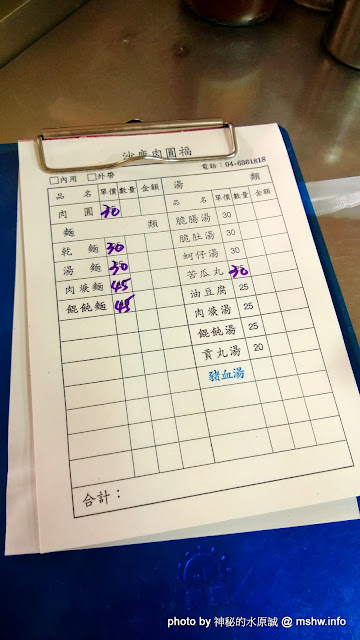 沙鹿肉圓福
□內用 □外帶 電話：04-6361818
品 名 單價 數量 金額 湯 類
肉 圓 30 品 名 單價 數量 金額
麵 類 脆腸湯 30
乾 麵 30 脆肚湯 30
湯 麵 30 蚵仔湯 30
肉焿麵 45 苦瓜丸 30
餛飩麵 45 油豆腐 25
肉焿湯 25
餛飩湯 25
貢丸湯 20
豬血湯
合計：
photo by 神秘的水原誠 @ mshw.info